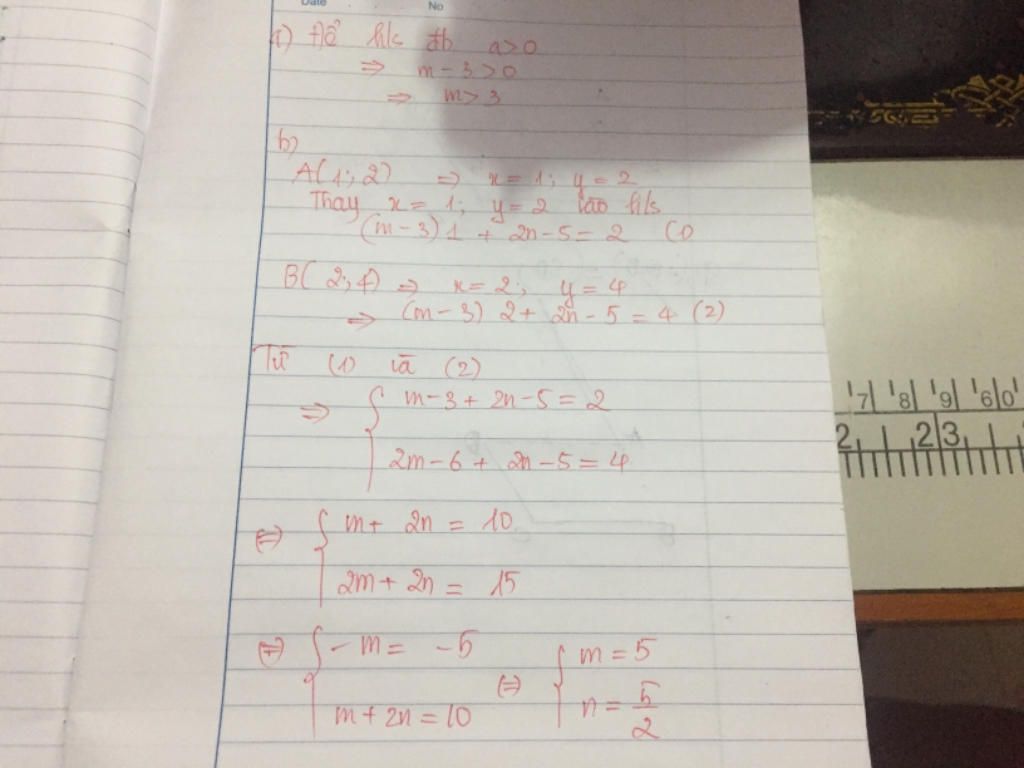 Date No
a) Để h/s đb a>0
⇒ m - 3 >0
⇒ m> 3
b)
A(1; 2) ⇒ x = 1; y = 2
Thay x = 1; y = 2 vào h/s
(m - 3) 1 + 2n - 5 = 2 (1)
B( 2; 4) ⇒ x = 2; y = 4
⇒ (m - 3) 2 + 2n - 5 = 4 (2)
Từ (1) và (2)
⇒ { m - 3 + 2n - 5 = 2
2m - 6 + 2n - 5 = 4
⇔ { m + 2n = 10
2m + 2n = 15
⇔ { - m = -5 ⇔ { m = 5
m + 2n = 10 n = 5/2
'7 '8 '9 '6 0'
2 2 3